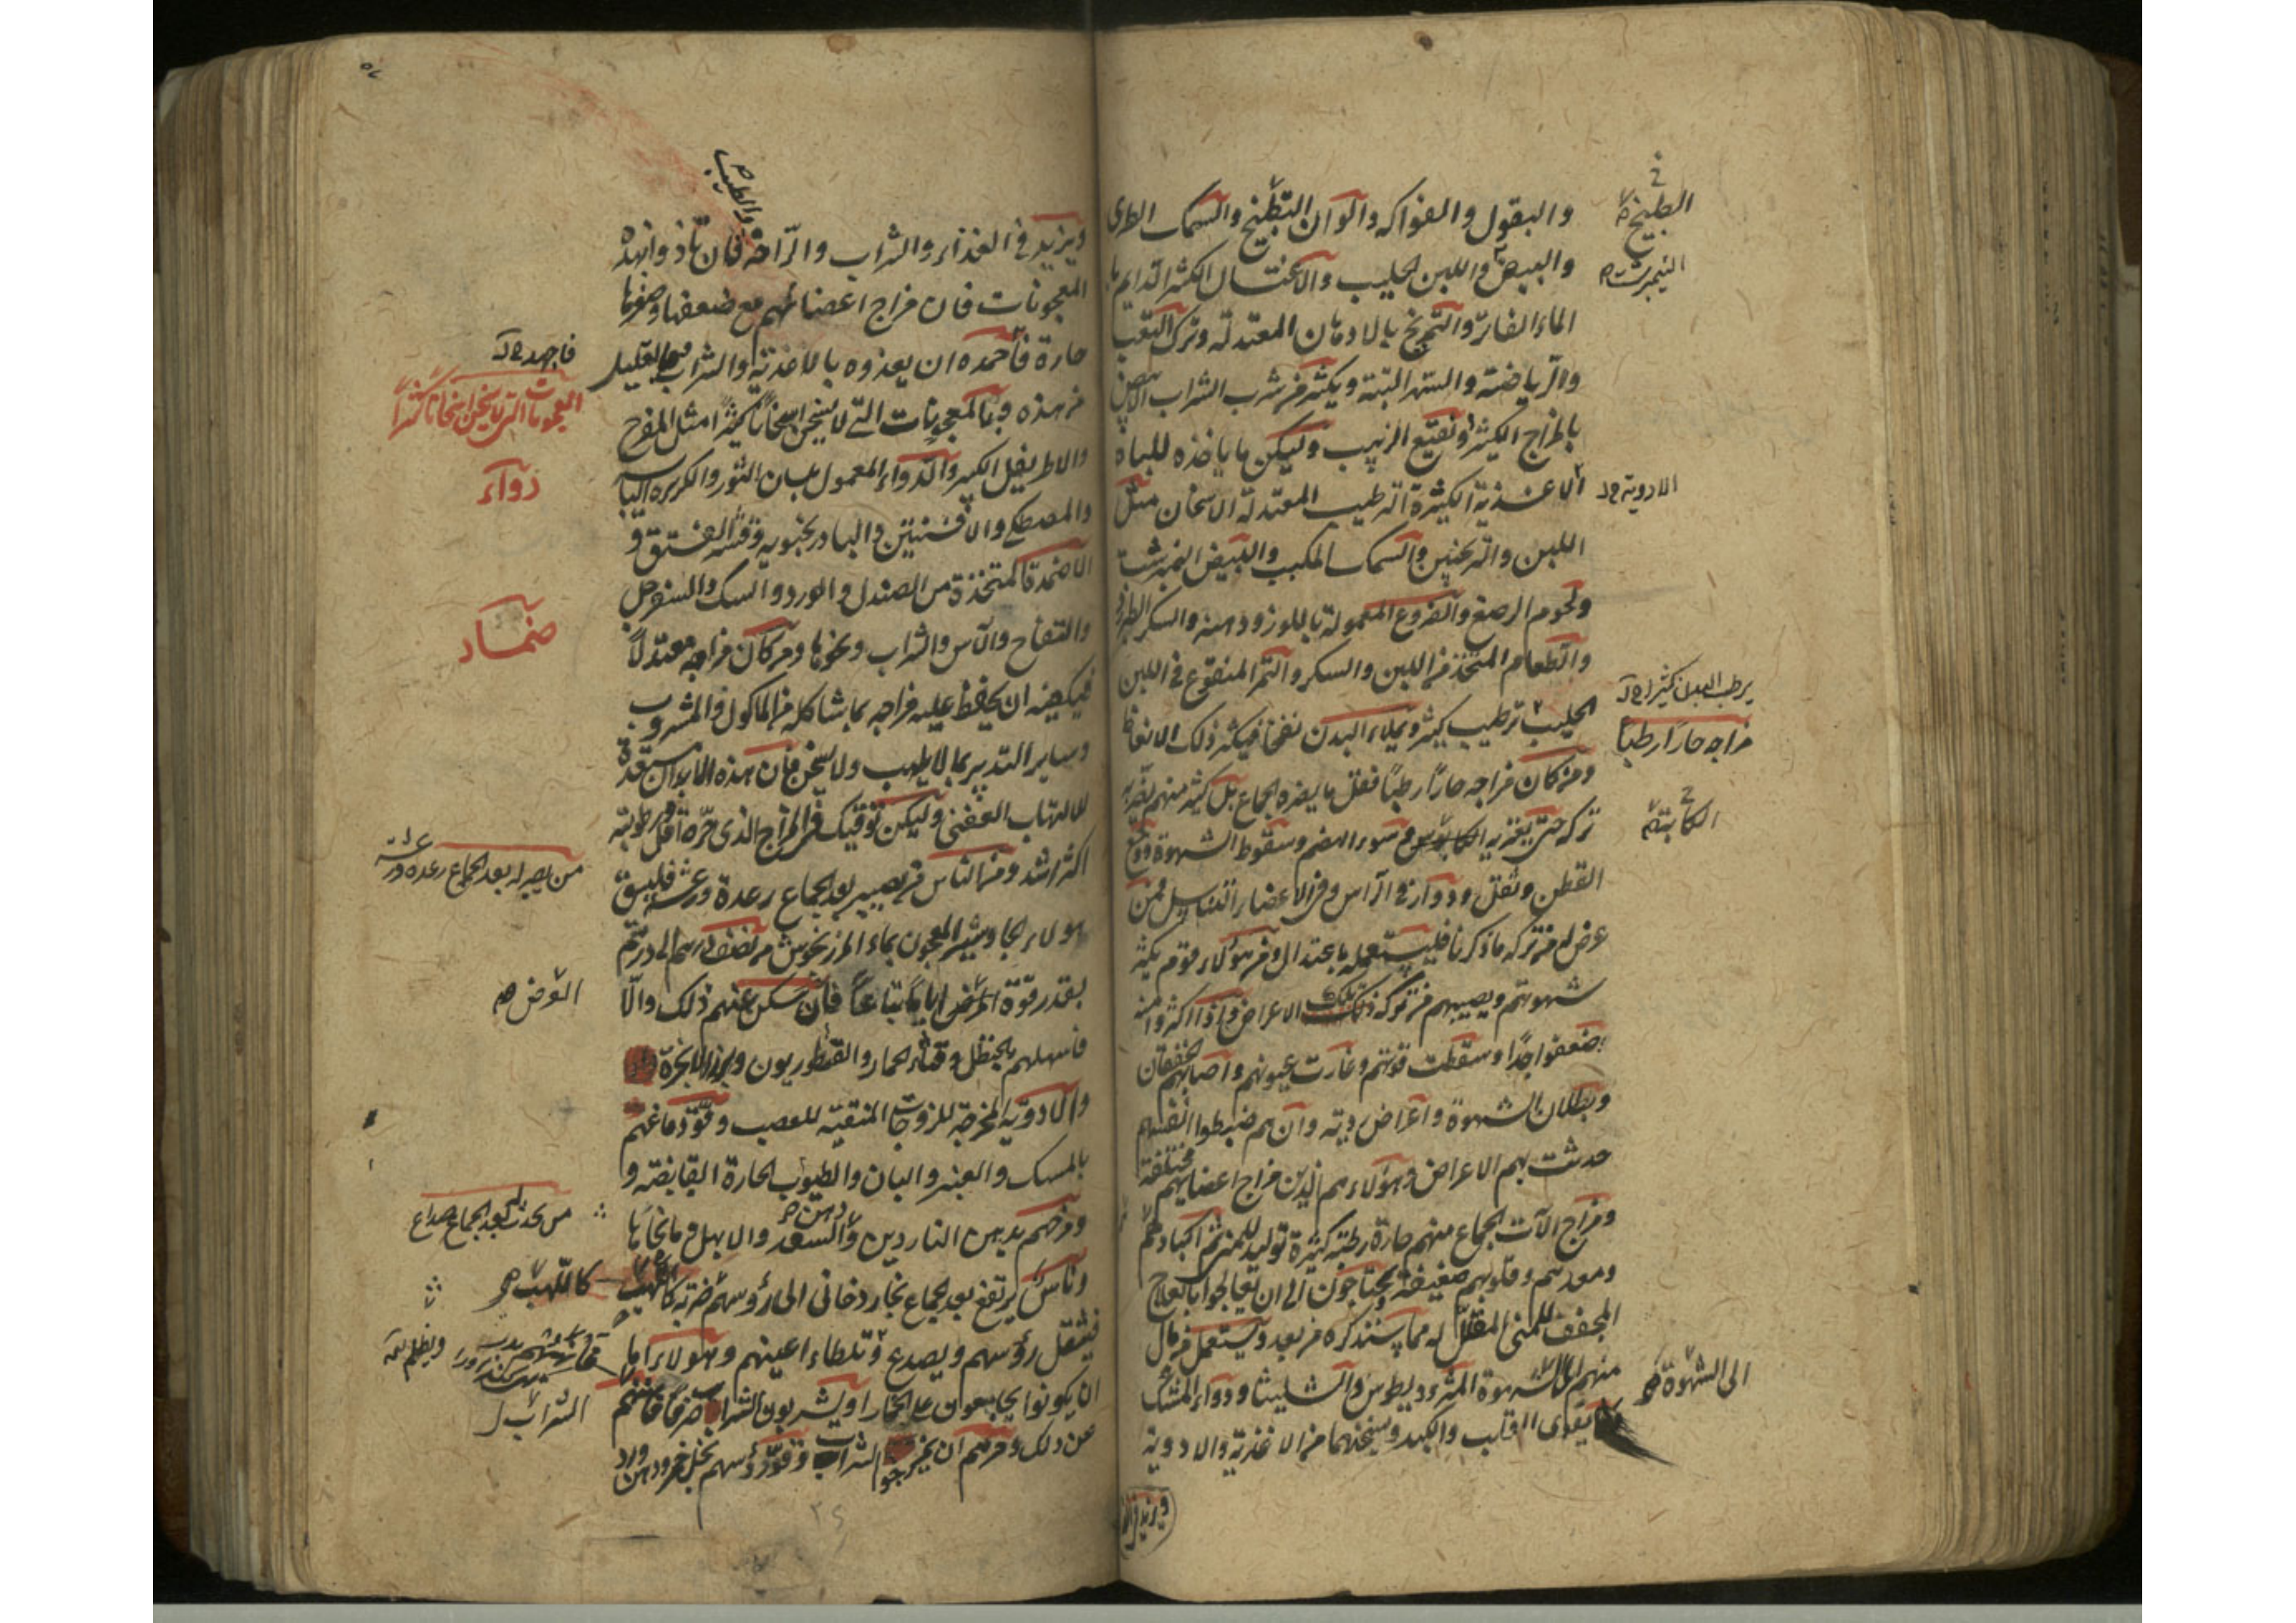 والبقول والفواكه والوان التطبيخ والسمك الطرى
والبيض واللبن الحليب والاغتسال الكثير الدايم با
الماء الفاتر والتمريخ بالادهان المعتدلة وترك التعب
والرياضة والسهر البتة ويكثر من شرب الشراب الابيض
بالمزاج الكثير ونقيع الزبيب وليكن ما ياخذه للباه
الاغذية الكثيرة الترطيب المعتدلة الاسخان مثل
اللبن والترنجبين والسمك المكبب والبيض النيمبرشت
ولحوم الرضع والفروع المعمولة باللوز ودهنه والسكر الطبرزد
والطعام المتخذ من اللبن والسكر والتمر المنقوع فى اللبن
الحليب ترطيب كثير ويملاء البدن نفخا فيكثر ذلك الانعاظ
ومن كان مزاجه حارا رطبا فقل ما يضره الجماع بل كثير منهم يضر به
تركه حتى يعتريه سوء الهضم وسقوط الشهوة ووجع
القطن وثقل ودوار فى الراس وفى الاعضاء التناسل فمن
عرض له من تركه ما ذكرنا فليستعمله باعتدال ومن هؤلاء قوم يكثر
شهوتهم ويصيبهم من تركه تلك الاعراض واذا اكثروا منه
ضعفوا جدا وسقطت قوتهم وغارت عيونهم واصابهم الخفقان
وبطلان الشهوة واعراض ردية وان هم ضبطوا انفسهم
حدثت بهم الاعراض وهؤلاء هم الذين مزاج اعضايهم مختلفة
ومزاج الآت الجماع منهم حارة رطبة كثيرة توليد للمنى ثم اكبادهم
ومعدهم وقلوبهم ضعيفة ويحتاجون الى ان يعالجوا بالعلاج
المجفف للمنى المقلل له مما سنذكره من بعد ويستعمل من مال
منهم الى الشهوة المثروديطوس والشليثا ودواء المسك
يقوى القلب والكبد ويسخنهما من الاغذية والادوية
الطبيخ
النيمبرشت
الادوية
يرطب البدن كثيرا
مزاجه حارا رطبا
الكابة
الى الشهوة
ويزيد فى
والطيب
ويزيد فى الغذاء والشراب والراحة فان تاذوا بهذه
المعجونات فان مزاج اعضائهم مع ضعفها وصغرها
حارة فاحمده ان يغذوه بالاغذية والشراب القليل
من هذه وبالمعجونات التى لا يسخن اسخانا كثيرا مثل المفرح
والاطريفل الكبير والدواء المعمول بلسان الثور والكزبره اليابسة
والمصطكى والافسنتين والبادرنجبويه وقشر الفستق و
الاضمدة المتخذة من الصندل والورد والسك والسفرجل
والتفاح والآس والشراب ونحوها ومن كان مزاجه معتدلا
فيكفيه ان يحفظ عليه مزاجه بما شاكله من الماكول والمشروب
وساير التدبير بما لا يلهب ولا يسخن فان هذه الابدان مستعدة
للالتهاب العفنى وليكن توقيك فى المزاج الذى حره اقل من رطوبته
اكثر اشد ومن الناس من يصيبه بعد الجماع رعدة ورعشة فليسق
هولاء الجاوشير المعجون بماء المرزنجوش من نصف درهم الى درهم
بقدر قوة المرض اياما تباعا فان سكن عنهم ذلك والا
فاسهلهم بالحنظل وقثاء الحمار والقنطوريون
والادوية المخرجة للزوجات المنقية للعصب وقو دماغهم
بالمسك والعنبر والبان والطيوب الحارة القابضة و
ومرخهم بدهن الناردين والسعد والابهل وما نحاها
وناس يرتفع بعد الجماع بخار دخانى الى رؤسهم ضربة كاللهب
فيثقل رؤسهم ويصدع وتلطاء اعينهم وهولاء اما
ان يكونوا يجامعون على الخمار او يشربون الشراب صرفا فانههم
عن ذلك ومرهم ان يخرجوا الشراب وقو رؤسهم بخل خمر ودهن ورد
فاجهد
المعجونات التى لا يسخن اسخانا كثيرا
دواء
ضماد
من يصيبه بعد الجماع رعده ورعشة
العوض
من يحدث له بعد الجماع صداع
كاللهب
ويظلم
الشراب
٢٤